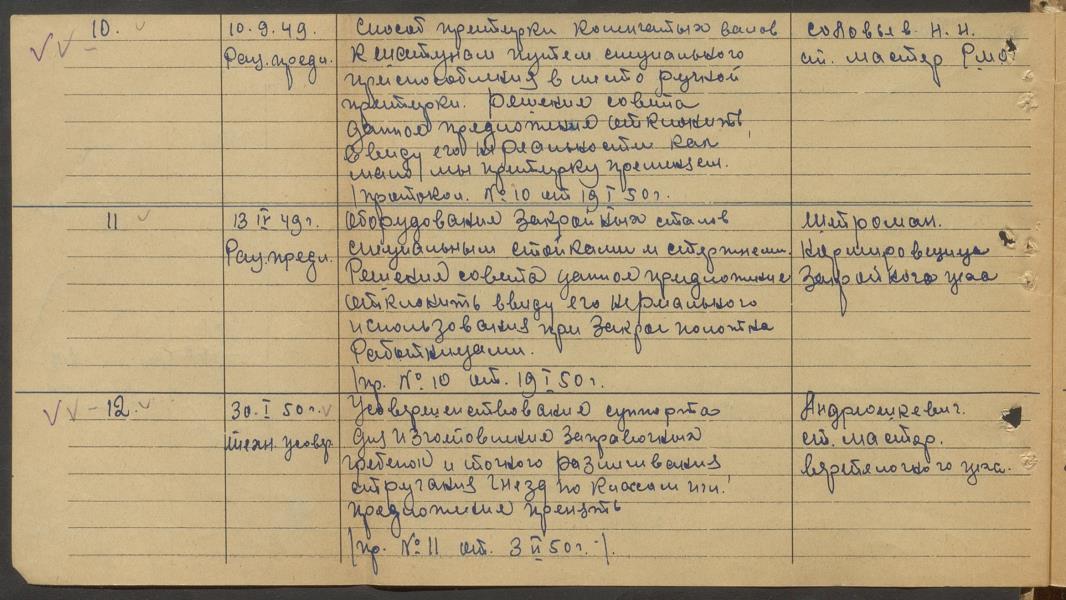 10.
10.9.49.
Рац. предл.
Способ притирки коленчатых валов
к шатунам путем специального
приспособления вместо ручной
притирки. Решение совета
данное предложение отклонить
ввиду его нереальности как
мало мы притирку применяем.
/протокол. № 10 от 19 I 50 г.
Соловьев. Н. Н.
ст. мастер Рмо
11
13 IV 49 г.
Рац. предл.
Оборудование закройных столов
специальными стойками и стержнями.
Решение совета данное предложение
отклонить ввиду его нормального
использования при закрое полотна
работницами.
/пр. № 10 от. 19 I 50 г.
Штроман.
Нормировщица
Закройного цеха
12.
30. I 50 г.
техн. усовер.
Усовершенствование суппорта
для изготовления заправочных
гребенок и точного размеживания
стругания гнезд по классам иги.
предложение принять
/пр. № 11 от. 3 II 50 г./.
Андрюшкевич.
ст. мастер.
веретеночного цеха.